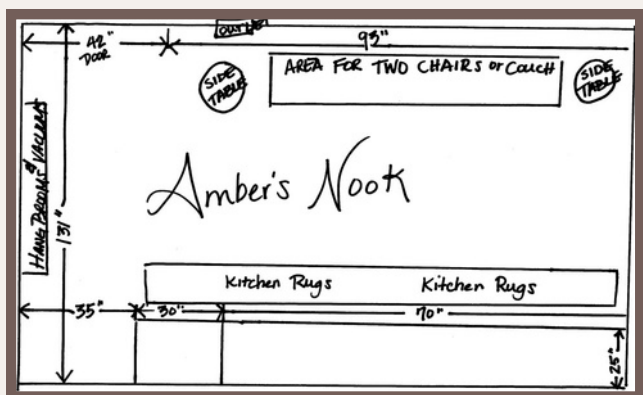 OUTLET
42"
DOOR
93"
SIDE
TABLE
AREA FOR TWO CHAIRS or COUCH
SIDE
TABLE
HANG BROOMS & VACUUMS
131"
Amber's Nook
Kitchen Rugs
Kitchen Rugs
35"
30"
70"
25"